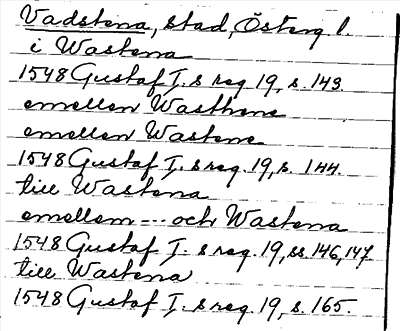 Vadstena, stad, Österg l.
i Wastena
1548 Gustaf I. s reg 19, s. 143.
emellan Wasthene
emellan Wastene
1548 Gustaf I. s reg. 19, s. 144.
till Wastena
emellem --- och Wastena
1548 Gustaf I. s reg. 19, ss. 146, 147
till Wastena
1548 Gustaf I. s reg. 19, s. 165.